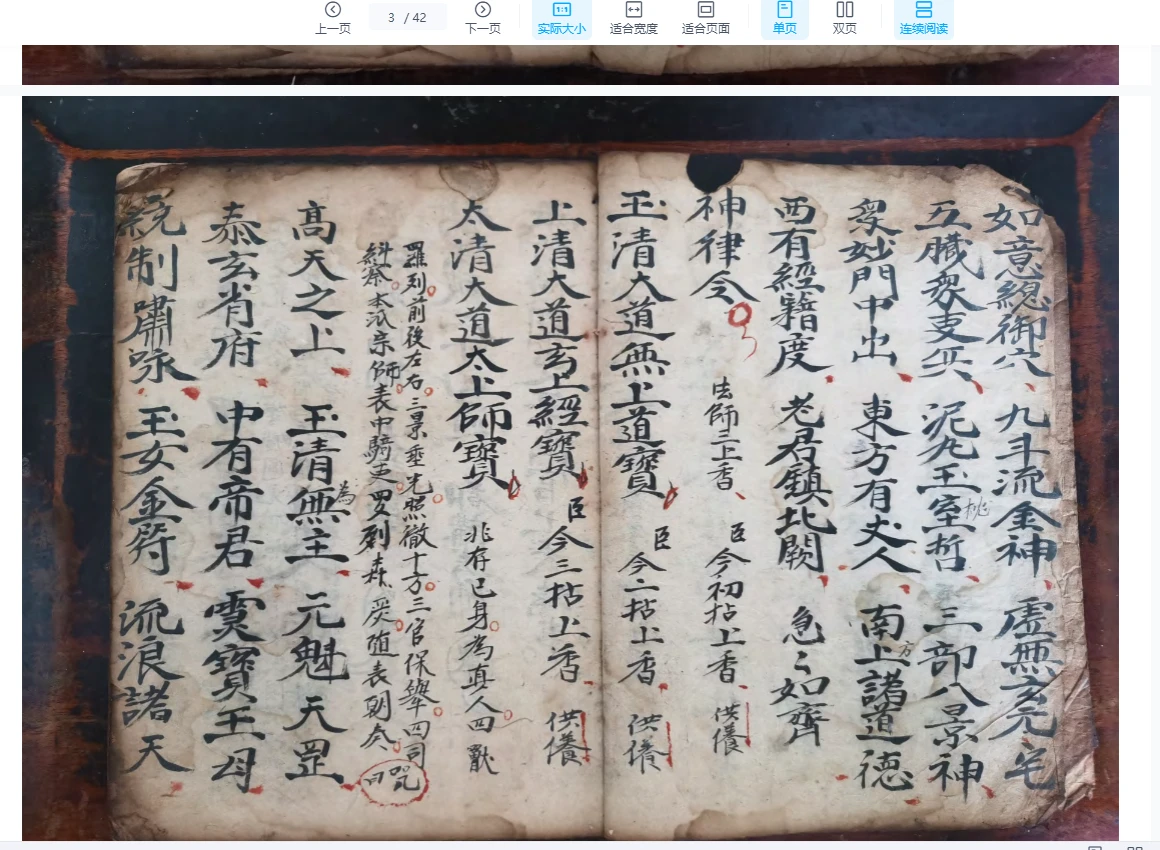 上一页
3 / 42
下一页
实际大小
适合宽度
适合页面
单页
双页
连续阅读
如意總御穴 九斗流金神 虛無玄元宅
五臟衆支兵 泥丸玉室哲 三部八景神
桃
衆妙門中出 東方有丈人 南上諸道德
方
西有經籍度 老君鎮北闕 急々如齊
神律令 法師三上香 臣今初拈上香 供養
玉清大道無上道寶 臣今二拈上香 供養
上清大道玄上經寶 臣今三拈上香 供養
太清大道太上師寶 兆存已身為真人四獸
羅列前後左右三景垂光照徹十方三官保舉四司
糾察本派宗師表中騎吏羅列森 随表朝奏 咒曰
高天之上 玉清無主 元魁天罡
為
泰玄省府 中有帝君 寶王母
統制嘯咏 玉女金符 流浪諸天